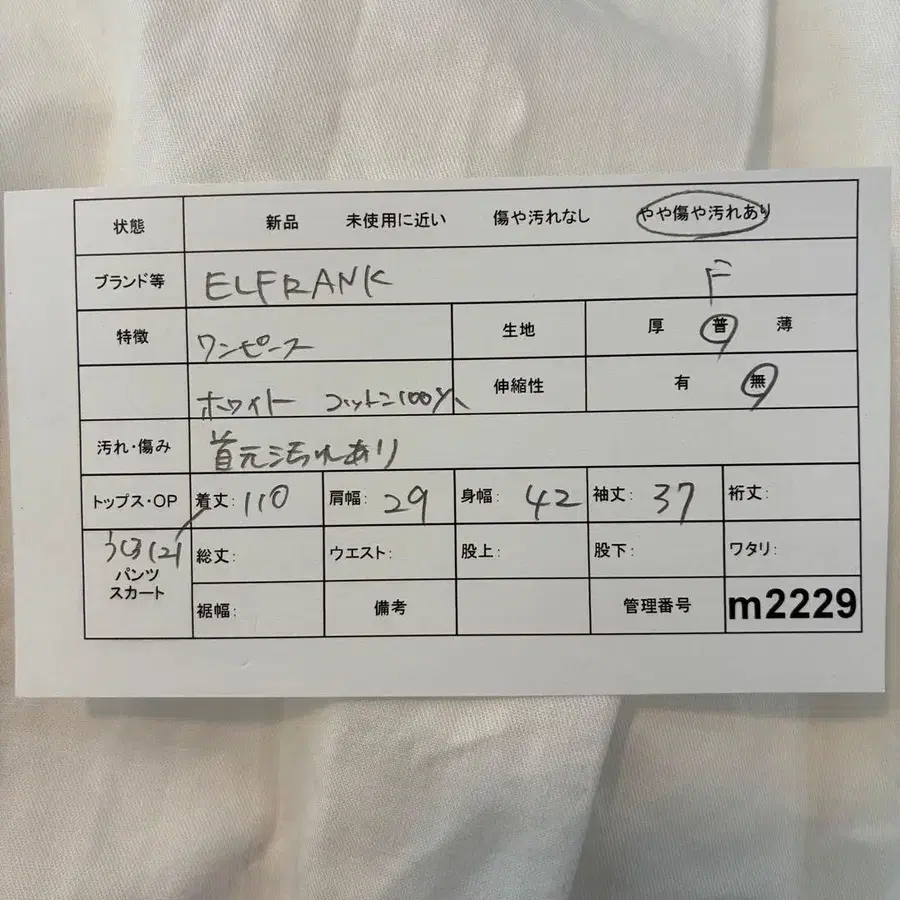 状態 新品 未使用に近い 傷や汚れなし やや傷や汚れあり
ブランド等 ELFRANK F
特徴 ワンピース 生地 厚 普 薄
ホワイト コットン100% 伸縮性 有 無
汚れ・傷み 首元汚れあり
トップス・OP 着丈: 110 肩幅: 29 身幅: 42 袖丈: 37 裄丈:
うしろ121
パンツ スカート 総丈: ウエスト: 股上: 股下: ワタリ:
裾幅: 備考 管理番号 m2229